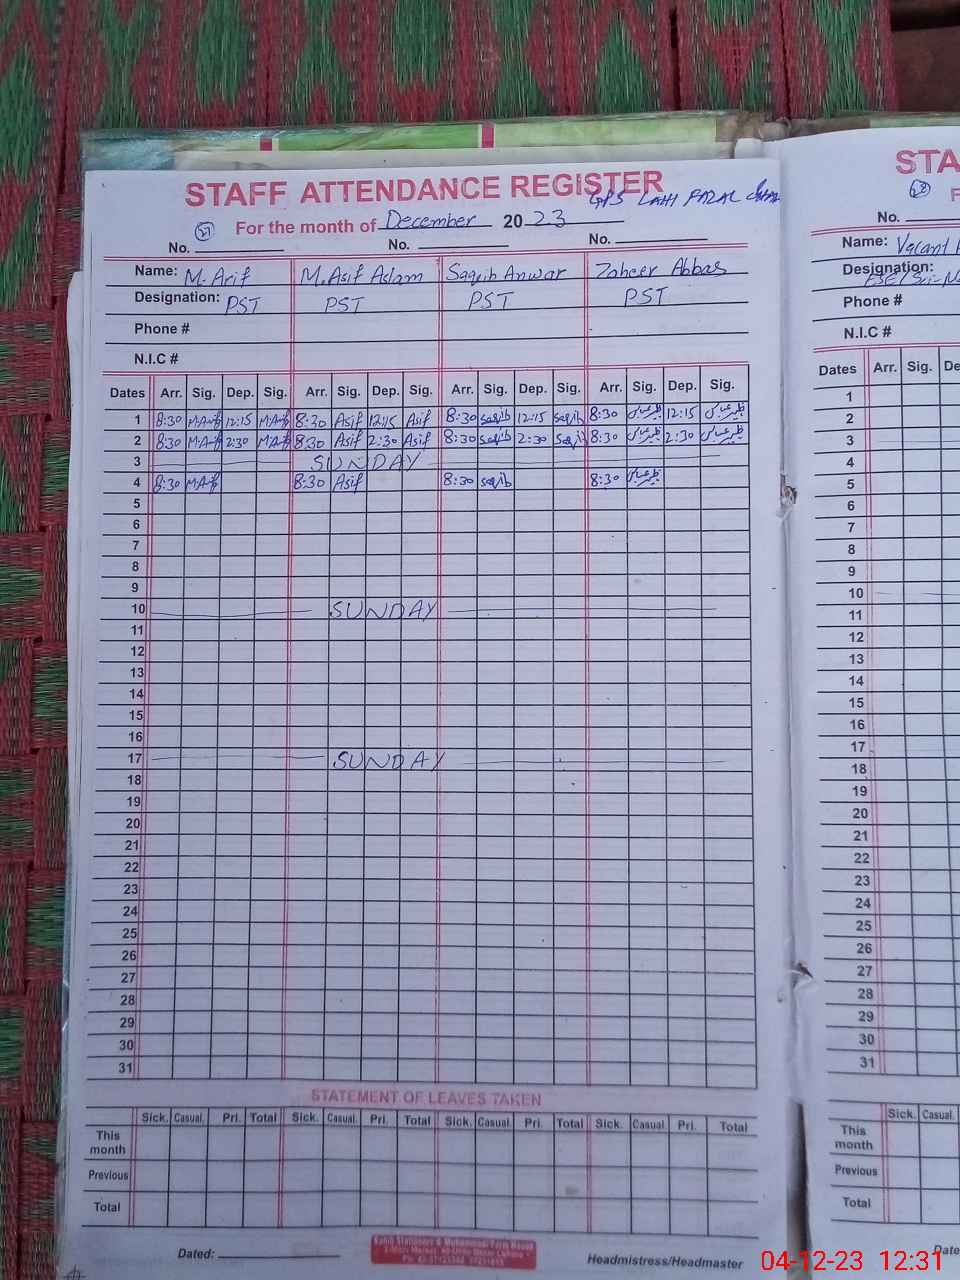 STAFF ATTENDANCE REGISTER
GPS LAHI FAZAL
57 For the month of December 2023
No. No. No.
Name: M. Arif M. Asif Aslam Saqib Anwar Zaheer Abbas
Designation: PST PST PST PST
Phone #
N.I.C #
Dates Arr. Sig. Dep. Sig. Arr. Sig. Dep. Sig. Arr. Sig. Dep. Sig. Arr. Sig. Dep. Sig.
1 8:30 M.Arif 12:15 M.Arif 8:30 Asif 12:15 Asif 8:30 saqib 12:15 saqib 8:30 ظہیر عباس 12:15 ظہیر عباس
2 8:30 M.Arif 2:30 M.Arif 8:30 Asif 2:30 Asif 8:30 saqib 2:30 saqib 8:30 ظہیر عباس 2:30 ظہیر عباس
3 SUNDAY
4 8:30 M.Arif 8:30 Asif 8:30 saqib 8:30 ظہیر عباس
5
6
7
8
9
10 SUNDAY
11
12
13
14
15
16
17 SUNDAY
18
19
20
21
22
23
24
25
26
27
28
29
30
31
STATEMENT OF LEAVES TAKEN
Sick. Casual. Pri. Total Sick. Casual. Pri. Total Sick. Casual. Pri. Total Sick. Casual. Pri. Total
This month
Previous
Total
Dated: Headmistress/Headmaster
STA
58 F
No.
Name: Vacant
Designation:
Phone #
N.I.C #
Dates Arr. Sig. De
1
2
3
4
5
6
7
8
9
10
11
12
13
14
15
16
17
18
19
20
21
22
23
24
25
26
27
28
29
30
31
Sick. Casual.
This month
Previous
Total
Date
04-12-23 12:31